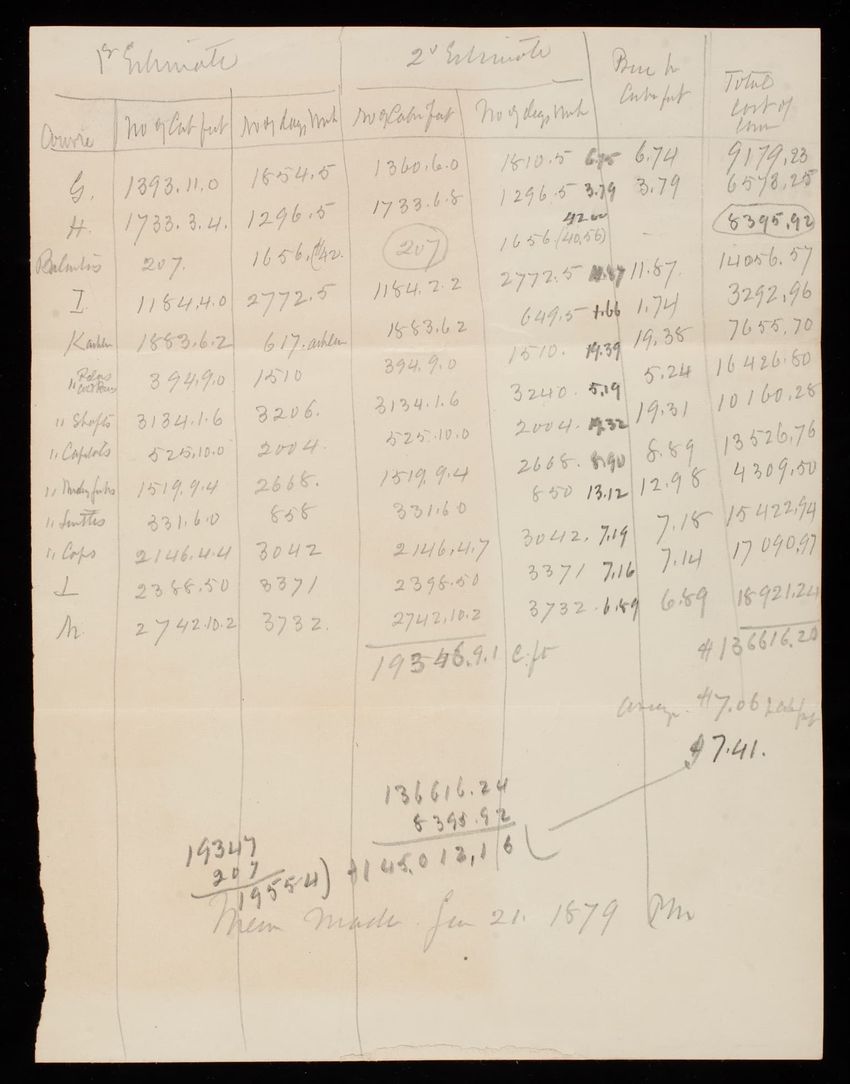 1st Estimate 2d Estimate
Price pr Cubic feet
Total cost of
Course No of Cub feet No of days Work No of Cubic feet No of days Work
G. 1393.11.0 1854.5 1360.6.0 1810.5 6.74 9179,23
H. 1733.3.4. 1296.5 1733.6.8 1296.5 3.79 3.79 6573,25
42.00
207. 1656. 207 1656 (40,56) - 8395,92
I 1184.4.0 2772.5 1184.2.2 2772.5 11.87 11.87. 14056.57
K ashlar 1883.6.2 617. ashlar 1883.6.2 649.5 1.66 1.74 3292,96
" 394.9.0 1510 394.9.0 1510. 19.39 19.38 7655,70
" Shafts 3134.1.6 3206. 3134.1.6 3240. 5.19 5.24 16426.80
" Capitals 525.10.0 2004. 525.10.0 2004. 19.32 19.31 10160,28
" 1519.9.4 2668. 1519.9.4 2668. 8.90 8.89 13526,76
" Lintels 331.6.0 858 331.6.0 850 13.12 12.98 4309,50
" Caps 2146.4.4 3042 2146.4.7 3042. 7.19 7.18 15422,94
L 2388.50 3371 2398.50 3371 7.16 7.14 17090,97
M. 2742.10.2 3732. 2742.10.2 3732. 6.89 6.89 18921,24
19348.9.1 c.ft $136616.20
average. $7.06
$7.41.
136616.24
8395.92
$145.012,16
19347
207
19554)
Mem made Jan 21. 1879